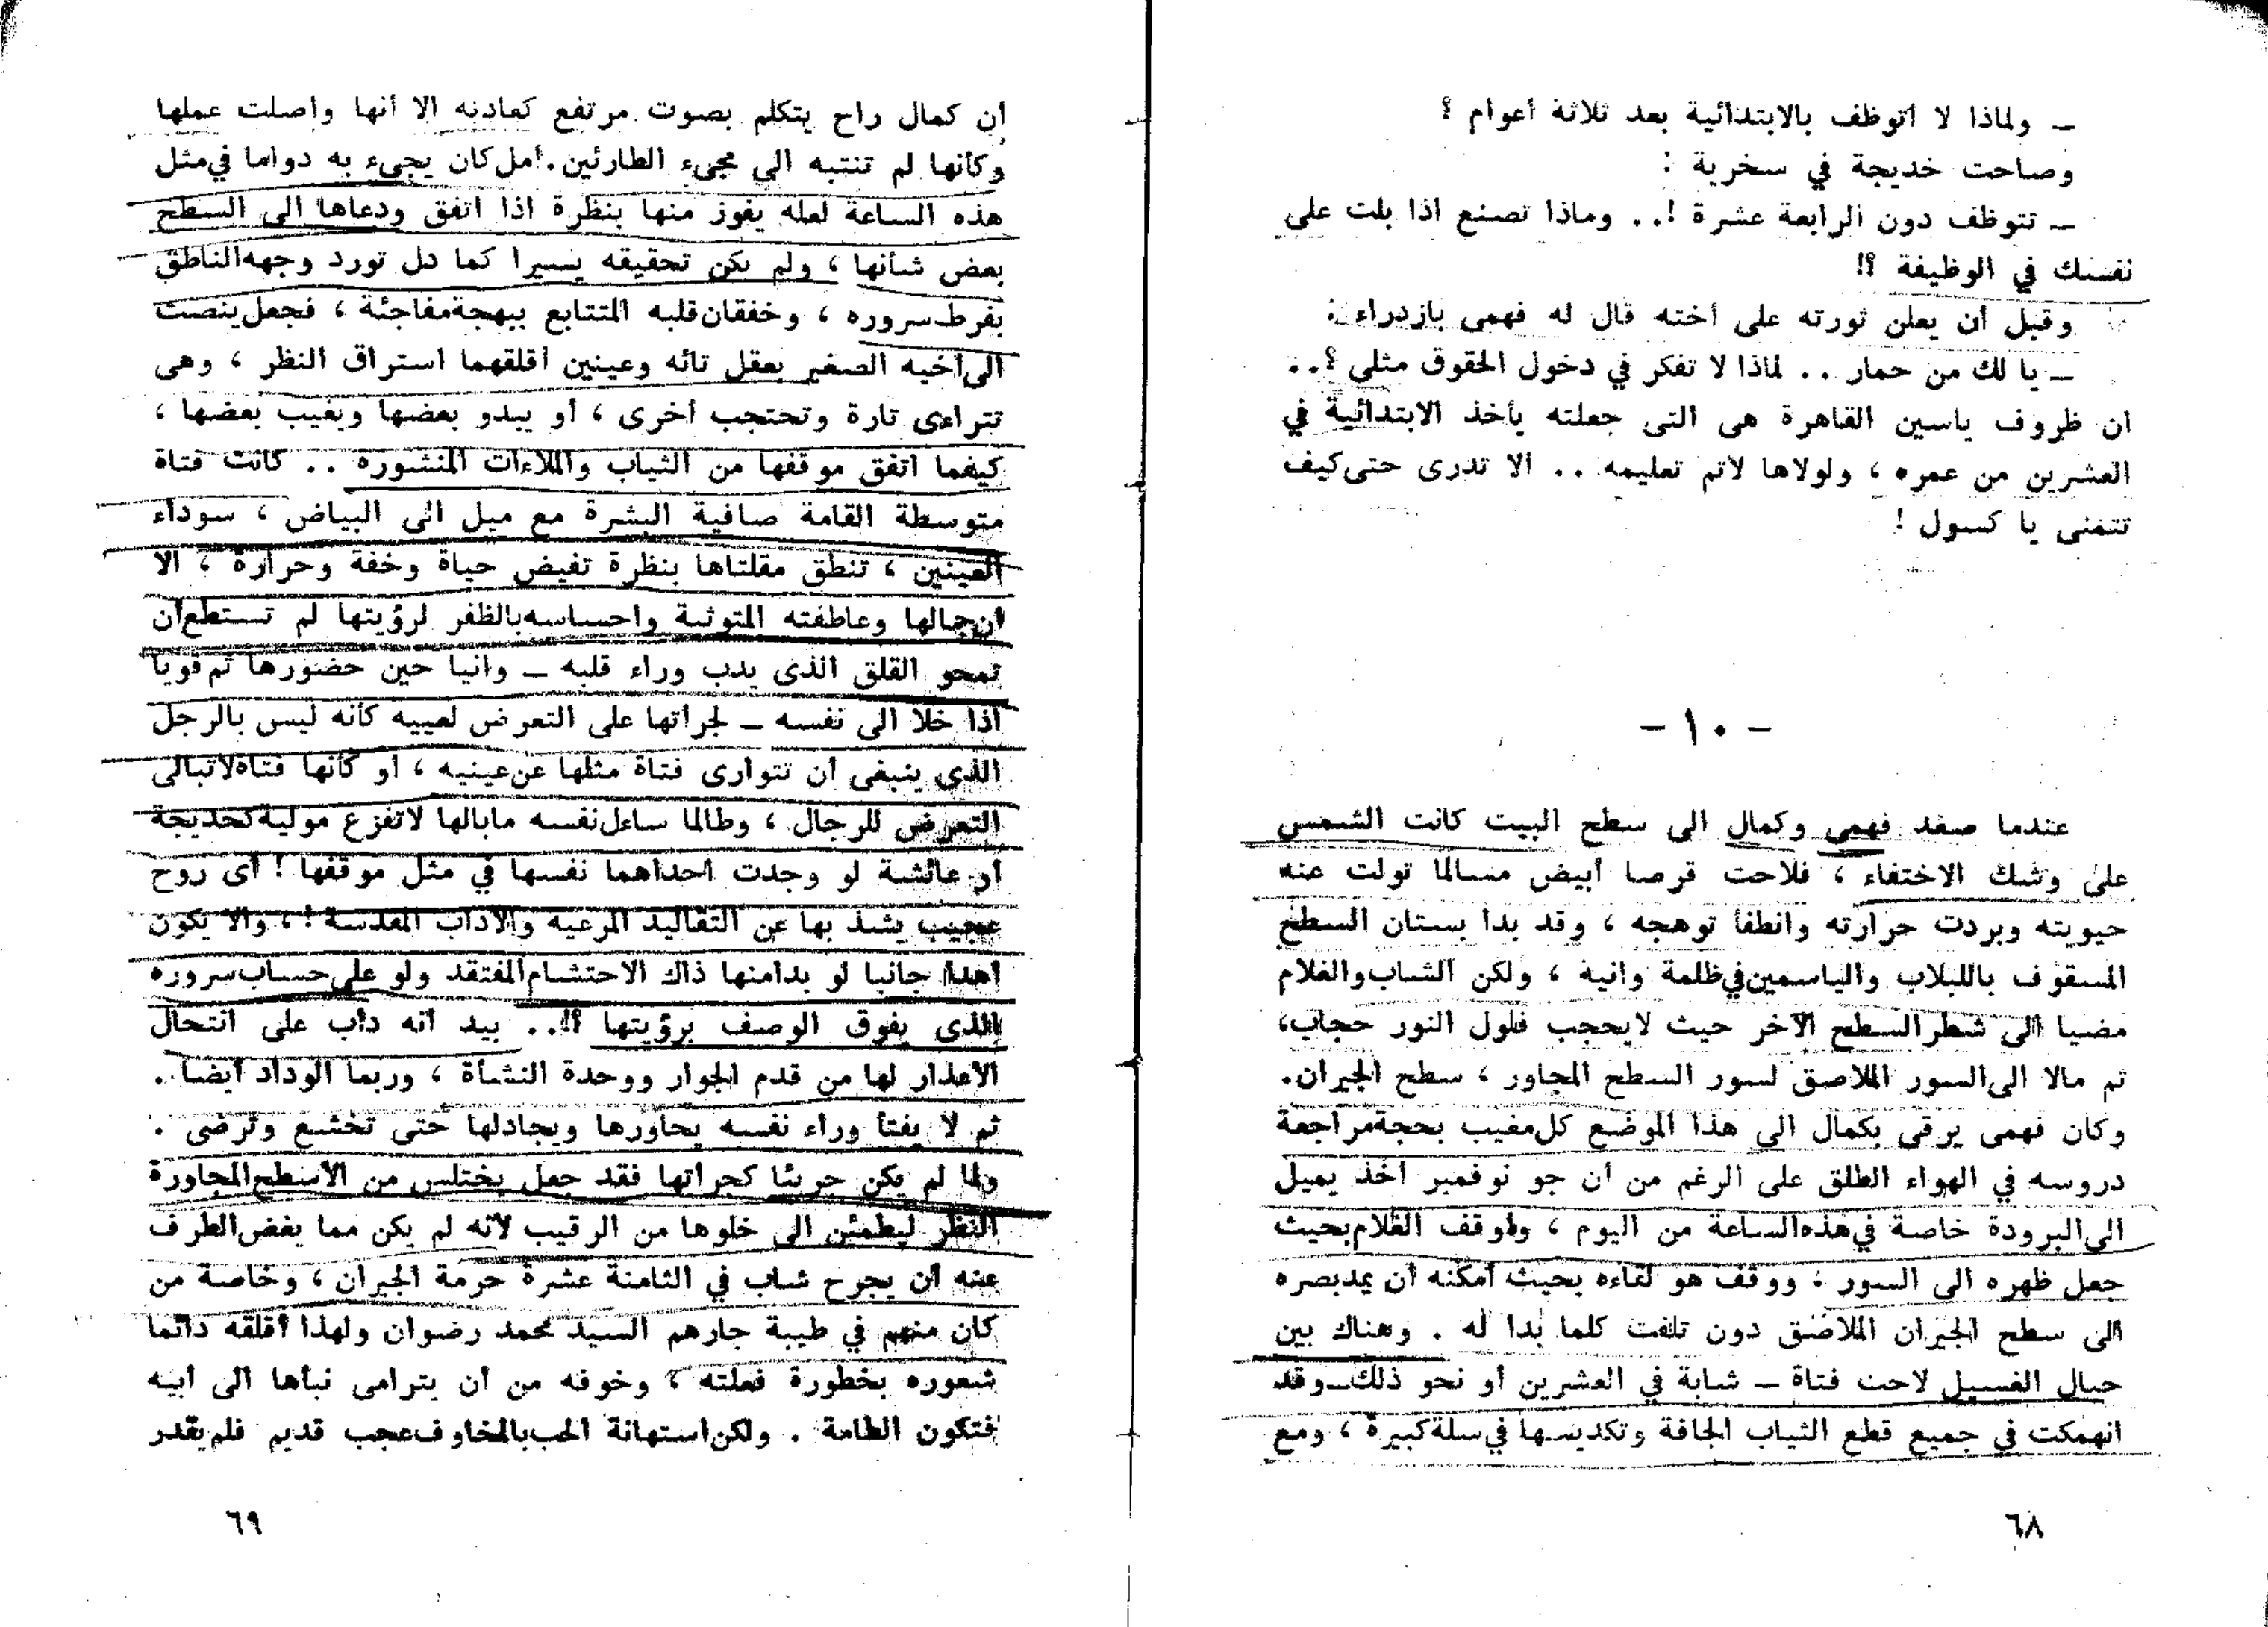 — ولماذا لا أتوظف بالابتدائية بعد ثلاثة أعوام ؟
وصاحت خديجة في سخرية :
— تتوظف دون الرابعة عشرة !.. وماذا تصنع اذا بلت على
نفسك في الوظيفة ؟!
وقبل أن يعلن ثورته على أخته قال له فهمى بازدراء :
— يا لك من حمار .. لماذا لا تفكر في دخول الحقوق مثلى ؟..
ان ظروف ياسين القاهرة هى التى جعلته يأخذ الابتدائية في
العشرين من عمره ، ولولاها لاتم تعليمه .. ألا تدرى حتى كيف
تتمنى يا كسول !
— ١٠ —
عندما صعد فهمى وكمال الى سطح البيت كانت الشمس
على وشك الاختفاء ، فلاحت قرصا أبيض مسالما تولت عنه
حيويته وبردت حرارته وانطفأ توهجه ، وقد بدا بستان السطح
المسقوف باللبلاب والياسمين في ظلمة وانية ، ولكن الشاب والغلام
مضيا الى شطر السطح الآخر حيث لا يحجب فلول النور حجاب،
ثم مالا الى السور الملاصق لسور السطح المجاور ، سطح الجيران.
وكان فهمى يرقى بكمال الى هذا الموضع كل مغيب بحجة مراجعة
دروسه في الهواء الطلق على الرغم من أن جو نوفمبر أخذ يميل
الى البرودة خاصة في هذه الساعة من اليوم ، وأوقف الغلام بحيث
جعل ظهره الى السور ، ووقف هو لقاءه بحيث أمكنه أن يمد بصره
الى سطح الجيران الملاصق دون تلفت كلما بدا له . وهناك بين
حبال الغسيل لاحت فتاة — شابة في العشرين أو نحو ذلك — وقد
انهمكت في جميع قطع الثياب الجافة وتكديسها في سلة كبيرة ، ومع
٦٨
أن كمال راح يتكلم بصوت مرتفع كعادته الا أنها واصلت عملها
وكأنها لم تنتبه الى مجىء الطارئين. أمل كان يجىء به دواما في مثل
هذه الساعة لعله يفوز منها بنظرة اذا اتفق ودعاها الى السطح
بعض شأنها ، ولم يكن تحقيقه يسيرا كما دل تورد وجهه الناطق
بفرط سروره ، وخفقان قلبه المتتابع ببهجة مفاجئة ، فجعل ينصت
الى أخيه الصغير بعقل تائه وعينين أقلقهما استراق النظر ، وهى
تتراءى تارة وتحتجب أخرى ، أو يبدو بعضها ويغيب بعضها ،
كيفما اتفق موقفها من الثياب والملاءات المنشورة .. كانت فتاة
متوسطة القامة صافية البشرة مع ميل الى البياض ، سوداء
العينين ، تنطق مقلتاها بنظرة تفيض حياة وخفة وحرارة ، الا
أن جمالها وعاطفته المتوثبة واحساسه بالظفر لرؤيتها لم تستطع أن
تمحو القلق الذى يدب وراء قلبه — وانيا حين حضورها ثم قويا
اذا خلا الى نفسه — لجرأتها على التعرض لعينيه كأنه ليس بالرجل
الذى ينبغى أن تتوارى فتاة مثلها عن عينيه ، أو كأنها فتاة لا تبالى
التعرض للرجال ، وطالما ساءل نفسه ما بالها لا تفزع مولية كخديجة
أو عائشة لو وجدت احداهما نفسها في مثل موقفها ! أى روح
عجيب يشذ بها عن التقاليد المرعية والآداب المقدسة ! ، وألا يكون
أهدأ جانبا لو بدا منها ذاك الاحتشام المفتقد ولو على حساب سروره
الذى يفوق الوصف برؤيتها ؟!.. بيد أنه دأب على انتحال
الأعذار لها من قدم الجوار ووحدة النشأة ، وربما الوداد أيضا..
ثم لا يفتأ وراء نفسه يحاورها ويجادلها حتى تخشع وترضى .
ولما لم يكن جريئا كجرأتها فقد جعل يختلس من الأسطح المجاورة
النظر ليطمئن الى خلوها من الرقيب لأنه لم يكن مما يغض الطرف
عنه أن يجرح شاب في الثامنة عشرة حرمة الجيران ، وخاصة من
كان منهم في طيبة جارهم السيد محمد رضوان ولهذا أقلقه دائما
شعوره بخطورة فعلته ، وخوفه من أن يترامى نبأها الى أبيه
فتكون الطامة . ولكن استهانة الحب بالمخاوف عجب قديم فلم يقدر
٦٩